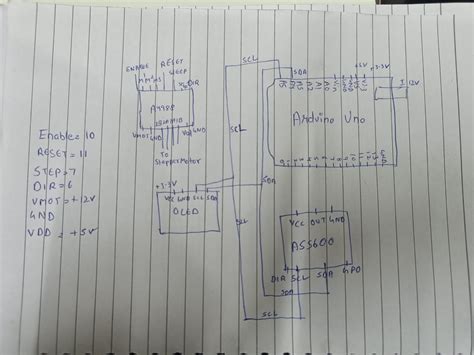 ENABLE
RESET
SLEEP
DIR
A4988
VMOT
GND
To
StepperMotor
Enable = 10
RESET = 11
STEP = 7
DIR = 6
VMOT = +12V
GND
VDD = +5V
+3.3V
VCC GND SCL SDA
OLED
SCL
SDA
SCL
SDA
SCL
+5V
+3.3V
12V
Arduino Uno
VCC OUT GND
AS5600
DIR SCL SDA GPO
SDA
SCL